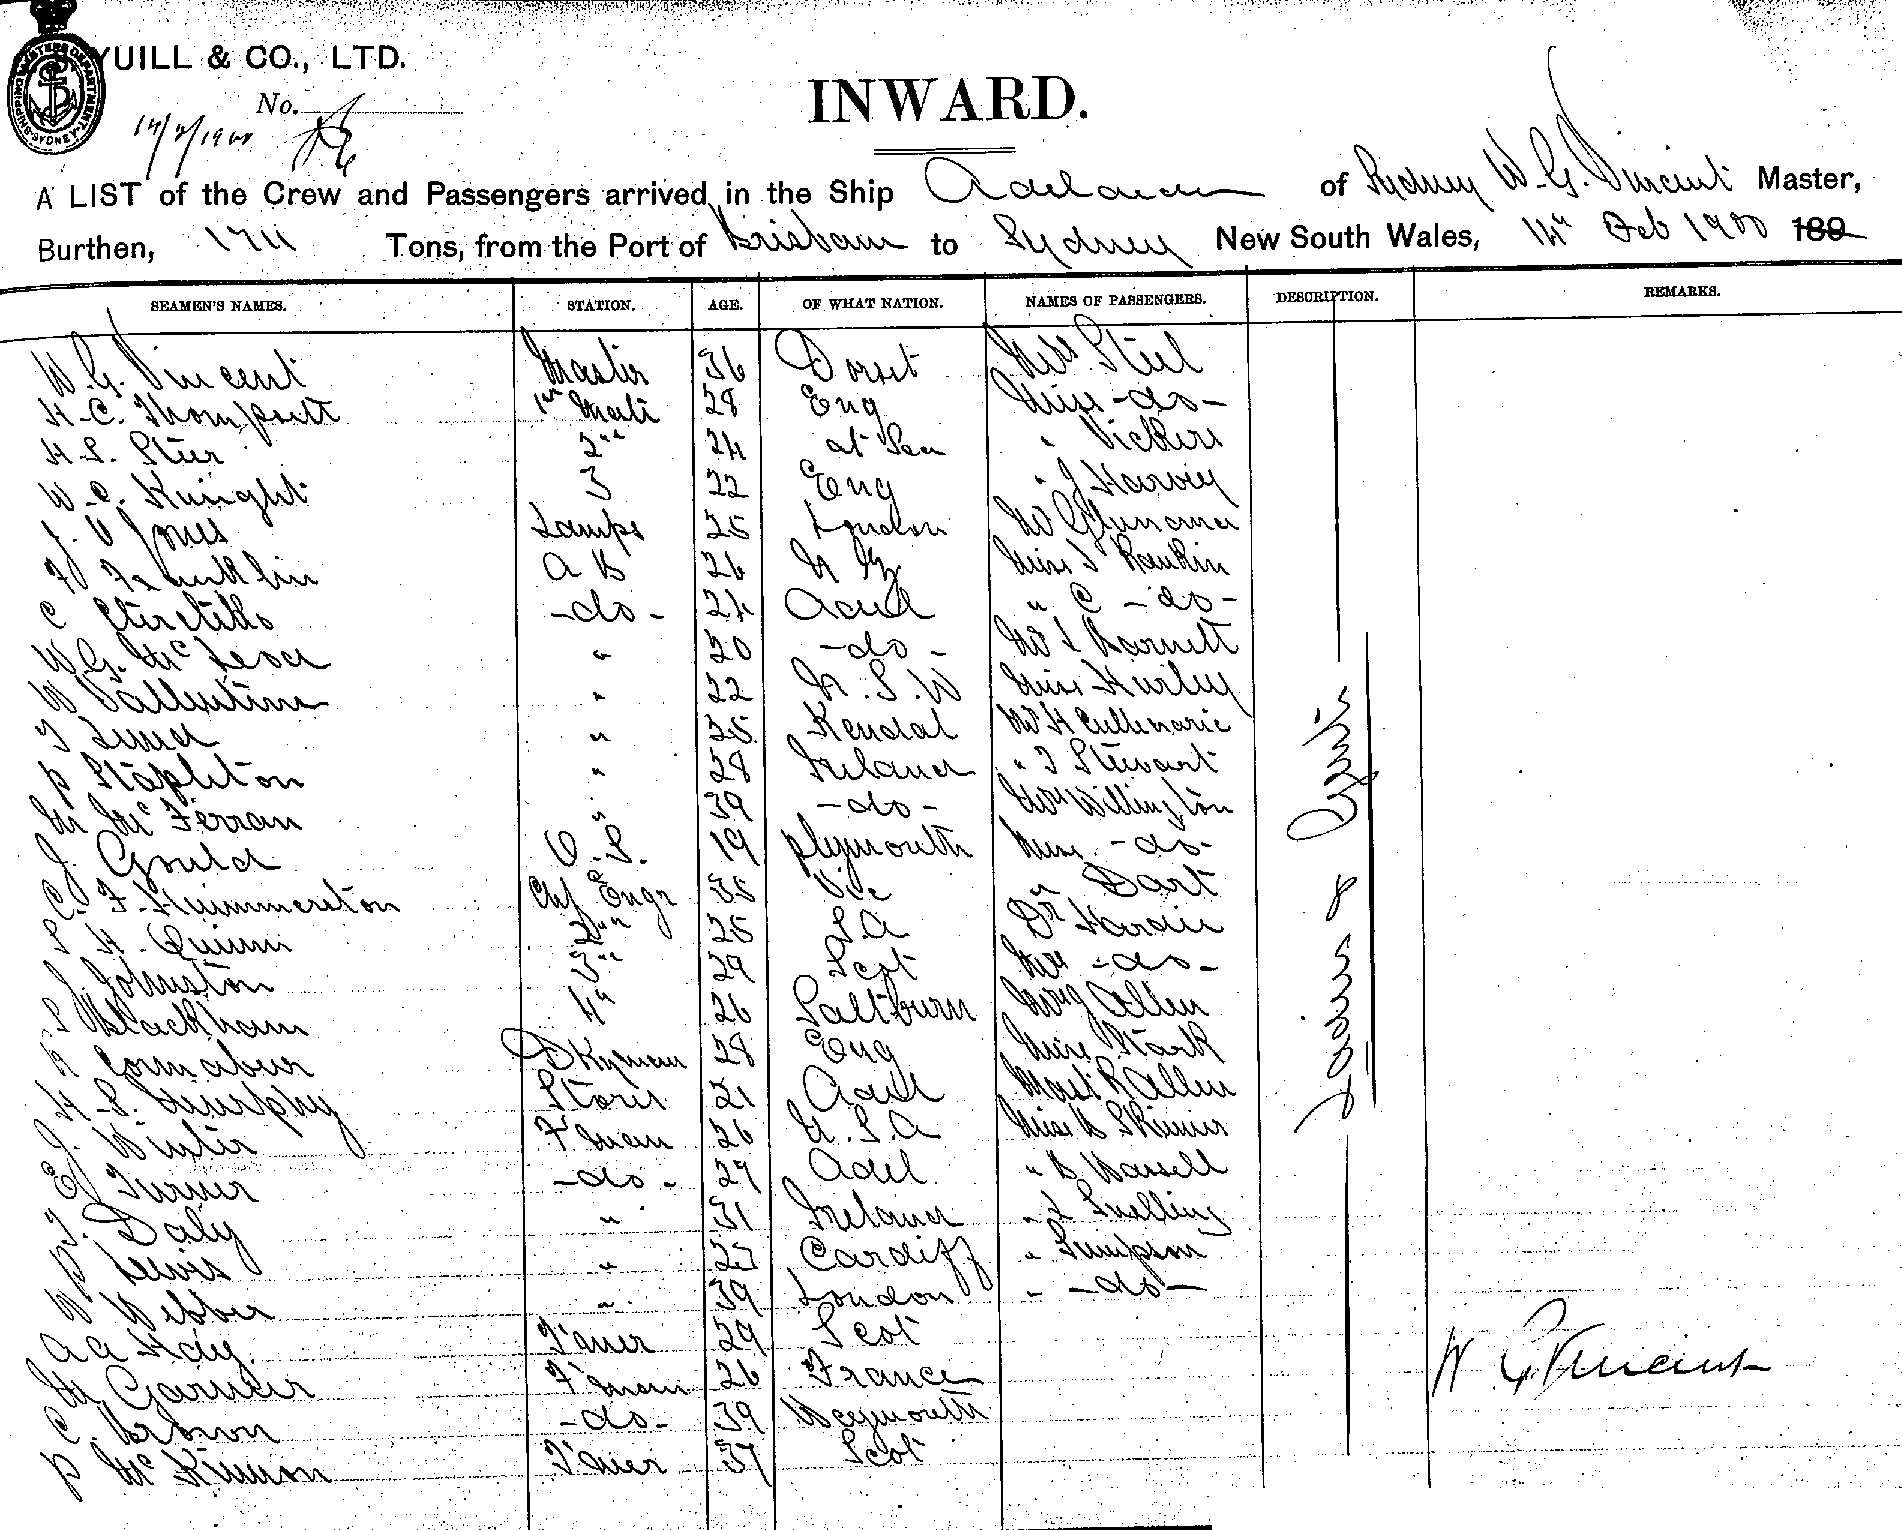 YUILL & CO., LTD.
No.
INWARD.
A LIST of the Crew and Passengers arrived in the Ship of Sydney W. G. Vincent Master,
Burthen, 1711 Tons, from the Port of Brisbane to Sydney New South Wales, 14th Feb 1900 189
SEAMEN'S NAMES. STATION. AGE. OF WHAT NATION. NAMES OF PASSENGERS. DESCRIPTION. REMARKS.
W. G. Vincent Master 36 Dorset Mrs Steel
H. C. Thompsett 1st Mate 28 Eng Miss -do-
H. S. Steer 2nd 24 at Sea " Vickers
W. C. Knight 3 22 Eng " J Harvey
J. V Jones Lamps 25 London Mr
F Franklin A B 26 N Z Miss S Rankin
C -do- 24 Adel " C -do-
W. G. McLeod " 20 -do- Mr L Barnett
W Vallentine " 22 N. S. W Miss Hurley
T Lund " 25 Kendal Mr H
P Stapleton " 28 Ireland " T Stewart
M McFerran " 39 -do- Mrs Willington
J. Gould O. S. 19 Plymouth Miss -do-
C. F. Chf Engr 35 Vic " Dart
S H. Quinn 2nd 25 S A Dr Hardie
J Johnston 3rd 29 Scot Mrs -do-
S Blackham 4th 26 Saltburn Mrs Allen
R Dkyman 28 Eng Miss Stark
H. S. Murphy Stores 21 Adel Mast R Allen
J. Winter F'man 26 U. S. A Miss B Skinner
E Turner -do- 27 Adel " B
T. Daly " 31 Ireland " L Snelling
P Lewis " 23 Cardiff " Simpson
W Webber " 39 London " -do-
A A T'mer 29 Scot
M Garnier F'man 26 France
C. Brown -do- 39 Weymouth
P McKinnon T'mer 37 Scot
W G Vincent